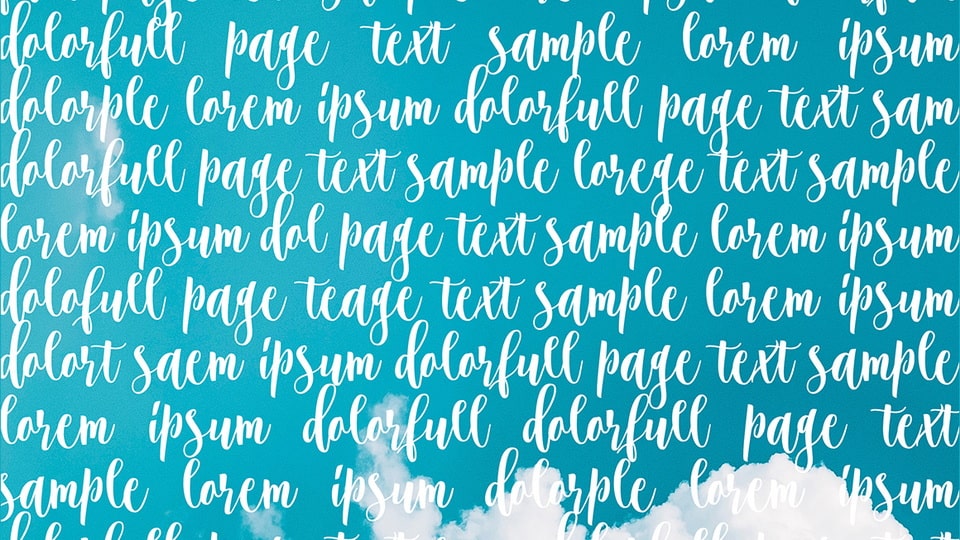 dolorfull page text sample lorem ipsum
dolorple lorem ipsum dolorfull page text sam
dolorfull page text sample lorege text sample
lorem ipsum dol page text sample lorem ipsum
dolofull page teage text sample lorem ipsum
dolort saem ipsum dolorfull page text sample
lorem ipsum dolorfull dolorfull page text
sample lorem ipsum dolorple lorem ipsum